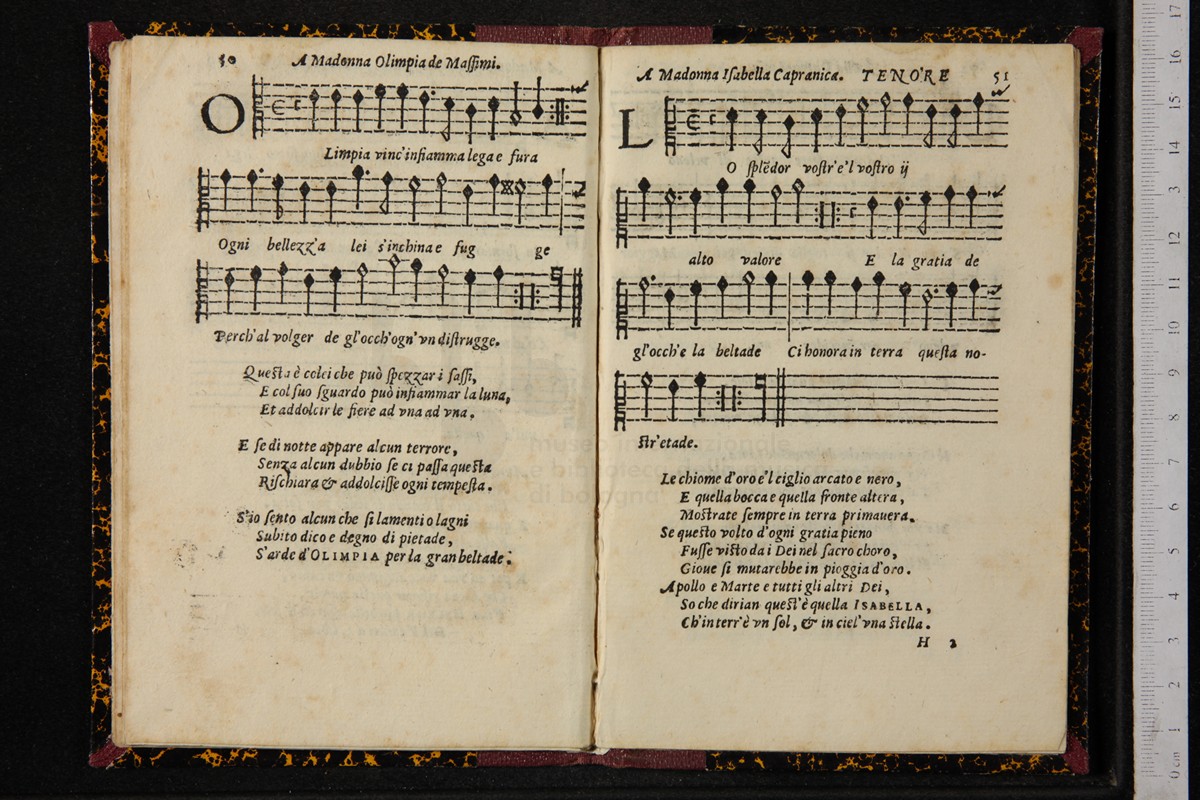 50 A Madonna Olimpia de Maſſimi.
OLimpia vinc'infiamma lega e fura
Ogni bellezz'a lei s'inchina e fug ge
Perch'al volger de gl'occh'ogn'vn diſtrugge.
Queſta è colei che può ſpezzar i ſaſſi,
E col ſuo ſguardo può infiammar la luna,
Et addolcir le fiere ad vna ad vna.
E ſe di notte appare alcun terrore,
Senza alcun dubbio ſe ci paſſa queſta
Riſchiara & addolciſſe ogni tempeſta.
S'io ſento alcun che ſi lamenti o lagni
Subito dico e degno di pietade,
S'arde d'OLIMPIA per la gran beltade.
A Madonna Iſabella Capranica. TENORE 51
LO ſplẽdor voſtr'e'l voſtro ij
alto valore E la gratia de
gl'occh'e la beltade Ci honora in terra queſta no-
ſtr'etade.
Le chiome d'oro e'l ciglio arcato e nero,
E quella bocca e quella fronte altera,
Moſtrate ſempre in terra primauera.
Se queſto volto d'ogni gratia pieno
Fuſſe viſto da i Dei nel ſacro choro,
Gioue ſi mutarebbe in pioggia d'oro.
Apollo e Marte e tutti gli altri Dei,
So che dirian queſt'è quella ISABELLA,
Ch'in terr'è vn ſol, & in ciel'vna ſtella.
H 2
museo internazionale
e biblioteca della musica
di bologna
0 cm 1 2 3 4 5 6 7 8 9 10 11 12 13 14 15 16 17